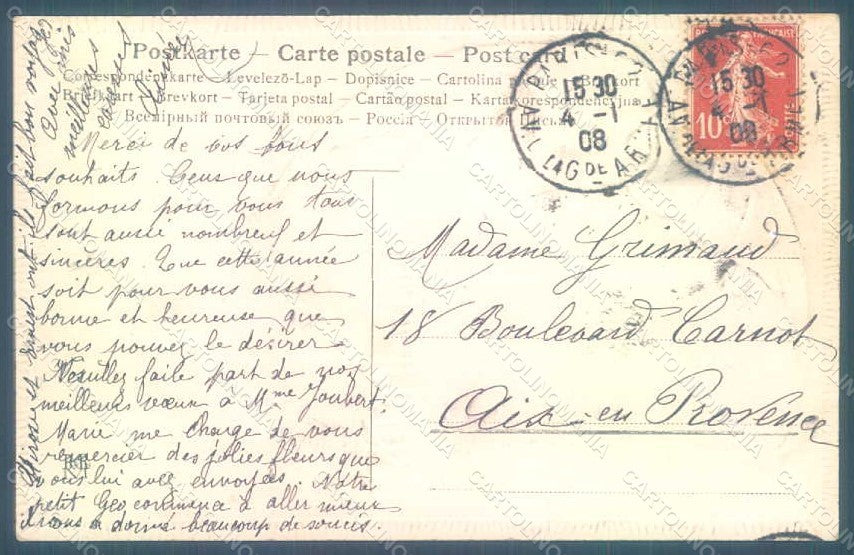 Postkarte - Carte postale - Post card
Correspondenzkarte - Levelező-Lap - Dopisnice - Cartolina postale - Brevkort
Briefkaart - Brevkort - Tarjeta postal - Cartão postal - Karta korespondencyjna
Всемірный почтовый союзъ - Россія - Открытое письмо
Avec nos
meilleures
Merci de vos bons
souhaits. Ceux que nous
formons pour vous tous
sont aussi nombreux et
sincères. Que cette année
soit pour vous aussi
bonne et heureuse que
vous pouvez le désirer
Veuillez faire part de nos
meilleurs vœux à Mme Joubert.
Marie me charge de vous
remercier des jolies fleurs que
vous lui avez envoyées. Notre
petit Geo commence à aller mieux
il nous a donné beaucoup de soucis.
et Ernest ont ils fait bon voyage
15 30
4 -1
08
15 30
4 -1
08
10
Madame Grimaud
18 Boulevard Carnot
Aix-en Provence
CARTOLINOMANIA